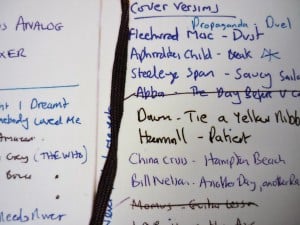 s ANALOG
XER
ht I Dreamt
mebody Loved Me
Grey (THE WHO)
Needs River
Cover Versions
Propaganda - Duel
Fleetwood Mac - Dust
Aphrodites Child - Break
Steeleye Span - Saucy Sailo
Abba - The Day Before U C
Dawn - Tie a Yellow Ribb
Hammill - Patient
China Crisis - Hampton Beach
Bill Nelson - Another Day, another Ra
Momus - Guitar Lesson